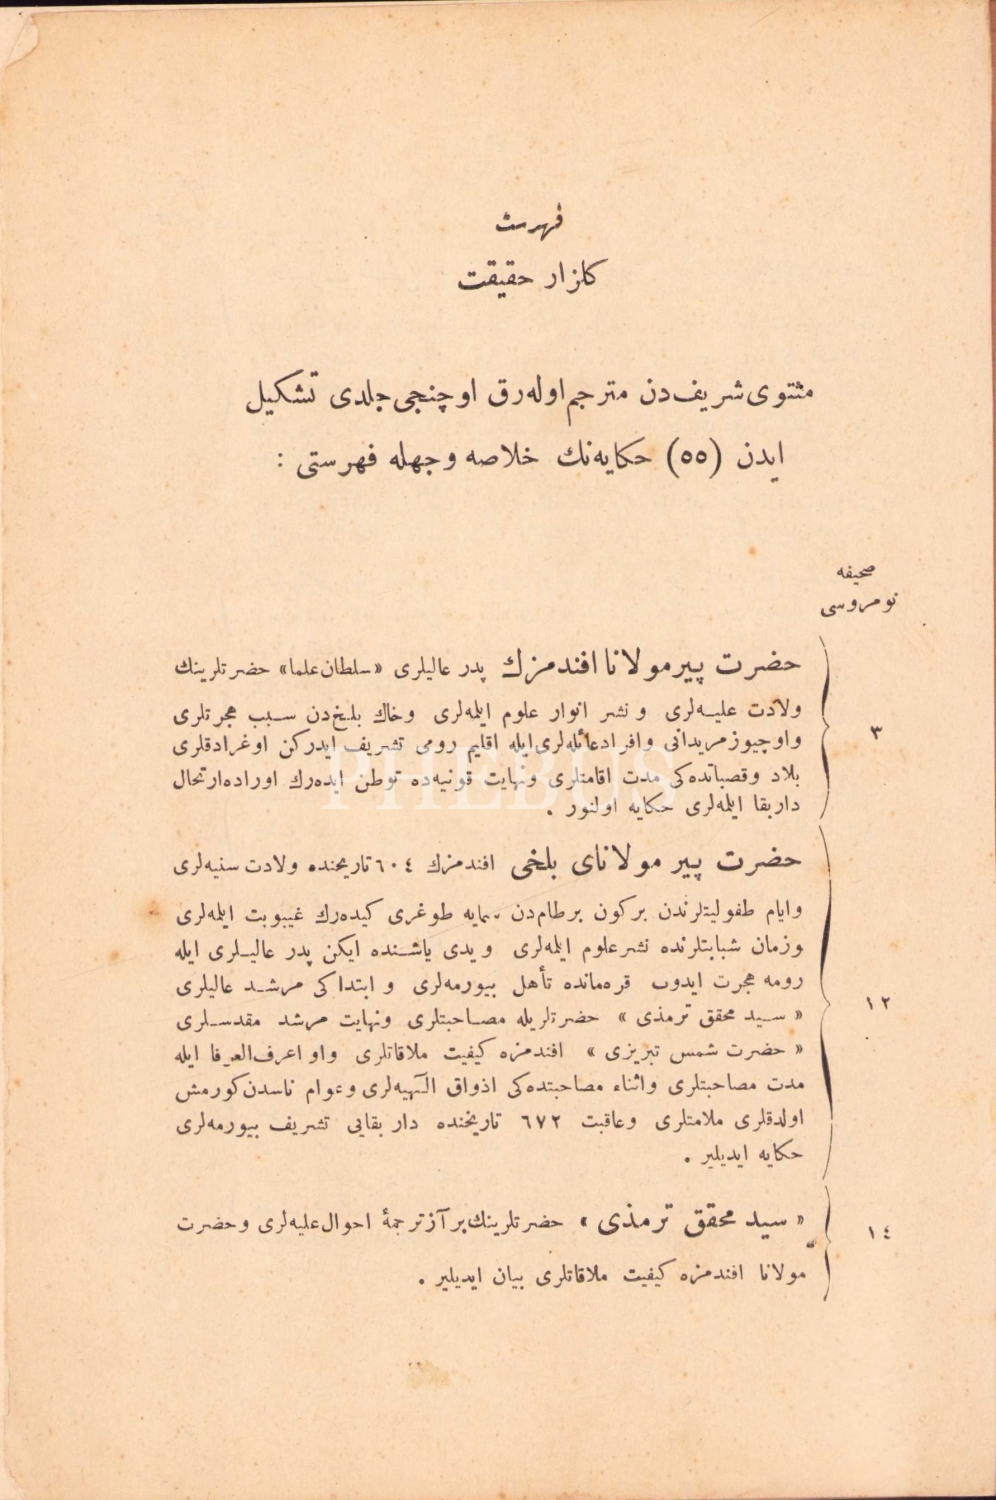 فهرست
كلزار حقيقت
مثنوی شریف‌دن مترجم اوله‌رق اوچنجی جلدی تشکیل
ایدن (٥٥) حکایه‌نك خلاصه وجهله فهرستی :
صحیفه
نومروسی
حضرت پیر مولانا افندمزك پدر عالیلری «سلطان علما» حضرتلرینك
ولادت علیه‌لری و نشر انوار علوم ایلمه‌لری وخاك بلخ‌دن سبب هجرتلری
واوچیوز مریدانی وافراد عائله‌لری ایله اقلیم رومی تشریف ایدرکن اوغرادقلری
٣
بلاد وقصباتده‌کی مدت اقامتلری ونهایت قونیه‌ده توطن ایده‌رك اوراده ارتحال
داربقا ایلمه‌لری حکایه اولنور .
PHEBUS
حضرت پیر مولانای بلخی افندمزك ٦٠٤ تاریخنده ولادت سنیه‌لری
وایام طفولیتلرندن برکون برطام‌دن سمایه طوغری کیده‌رك غیبوبت ایلمه‌لری
وزمان شبابتلرنده نشر علوم ایلمه‌لری ویدی یاشنده ایکن پدر عالیلری ایله
رومه هجرت ایدوب قره‌مانده تأهل بیورمه‌لری و ابتداکی مرشد عالیلری
١٢
« سید محقق ترمذی » حضرتلریله مصاحبتلری ونهایت مرشد مقدسلری
« حضرت شمس تبریزی » افندمزه کیفیت ملاقاتلری واو اعرف‌العرفا ایله
مدت مصاحبتلری واثناء مصاحبتده‌کی اذواق الٓهیه‌لری وعوام ناسدن کورمش
اولدقلری ملامتلری وعاقبت ٦٧٢ تاریخنده دار بقایی تشریف بیورمه‌لری
حکایه ایدیلیر .
« سید محقق ترمذی » حضرتلرینك بر آز ترجمهٔ احوال علیه‌لری وحضرت
١٤
مولانا افندمزه کیفیت ملاقاتلری بیان ایدیلیر .